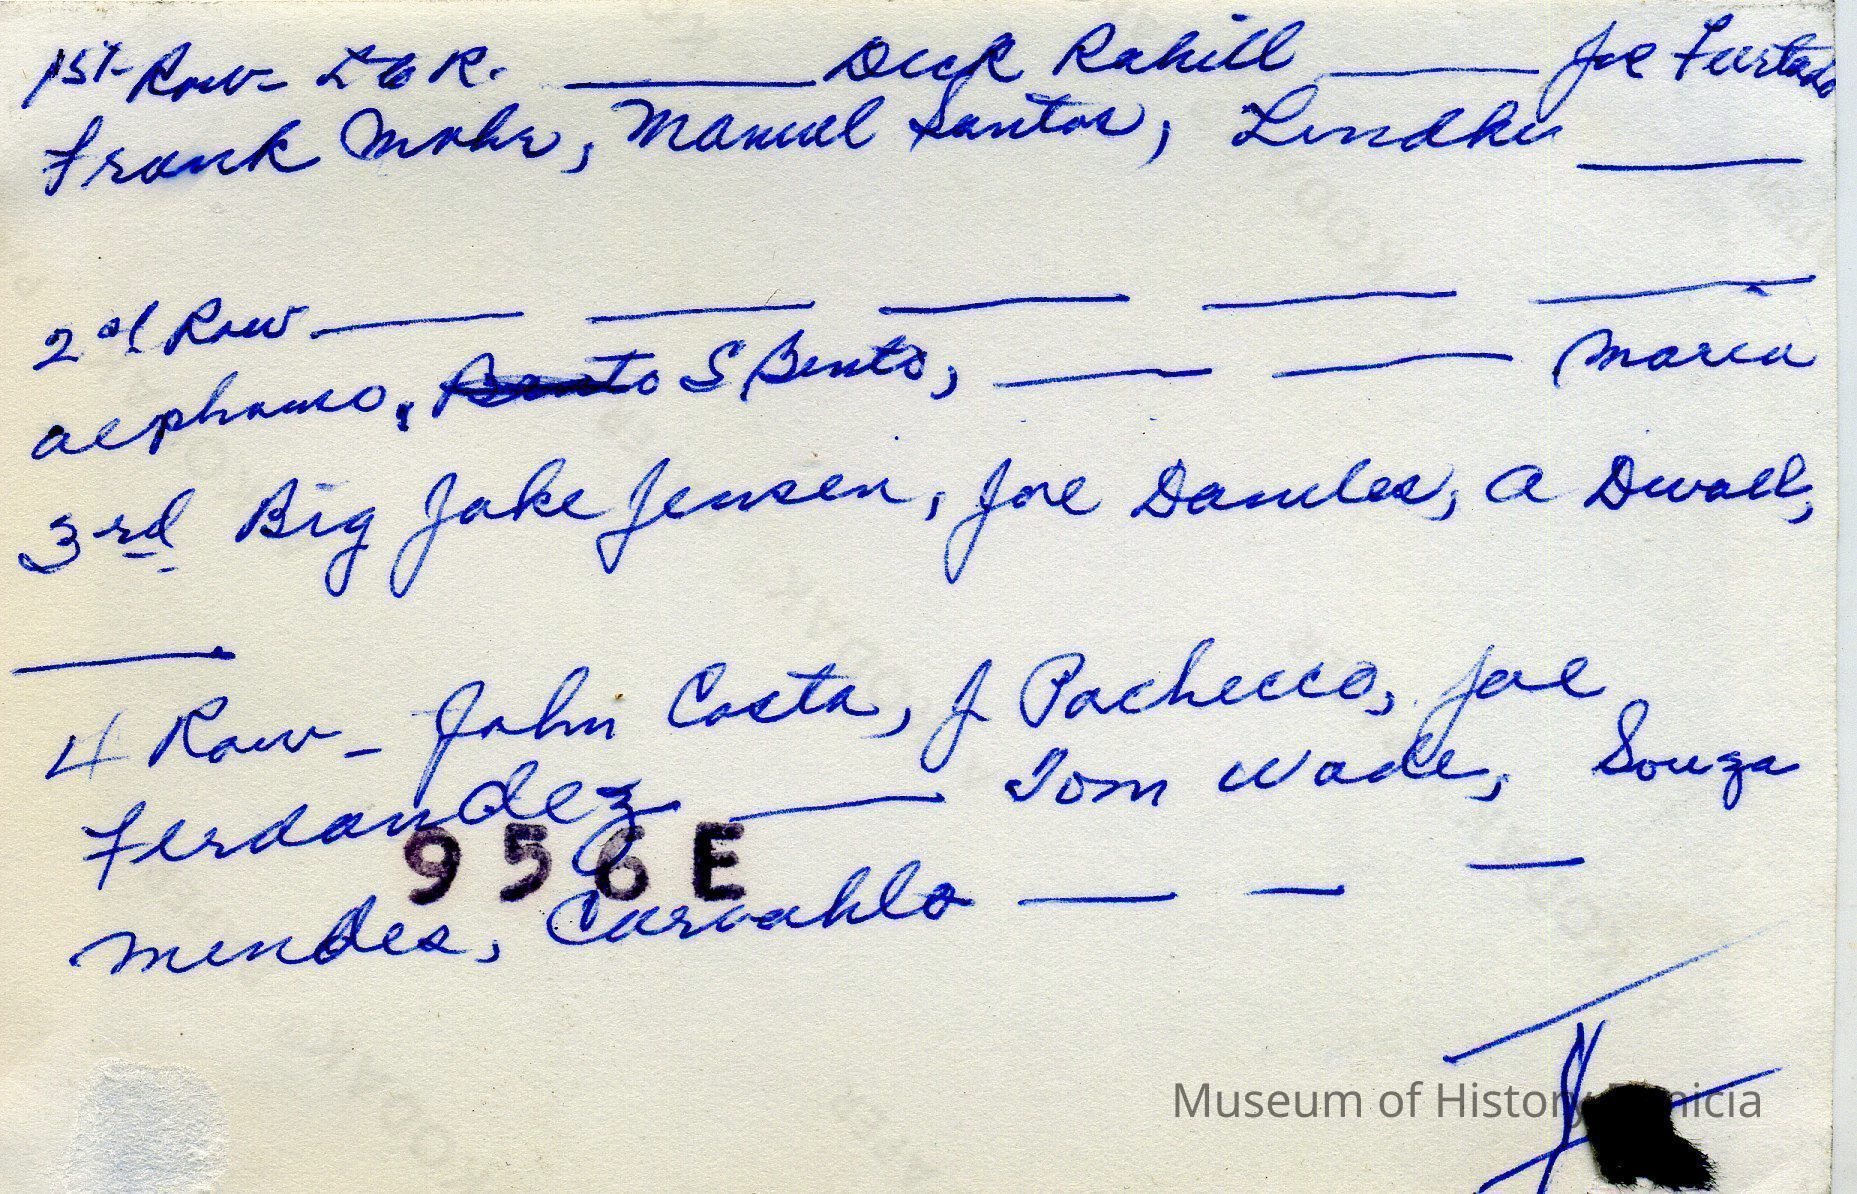 1st Row - L to R. ______ Dick Rahill ______ Joe Furtado
Frank Mohr, Manuel Santos, ______
2nd Row ______ ______ ______ ______ ______
S Bento, ______ ______ Maria
3rd Big Jake Jensen, Joe Daniles, A Duvall,
______
4 Row - John Costa, J Pachecco, Joe
Ferdandez ______ Tom Wade, Souza
956E
Mendes, Carvahlo ___ ___ ___
Museum of History Benicia